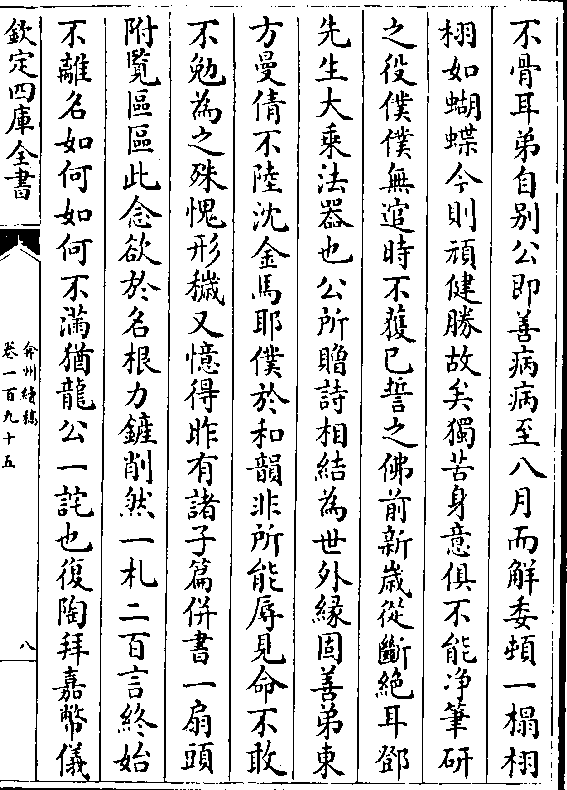 不骨耳弟自别公即善病病至八月而解委頓一榻栩
栩如蝴蝶今則頑健勝故矣獨苦身意俱不能净筆研
之役僕僕無逭時不獲已誓之佛前新歳從斷絶耳鄧
先生大乘法器也公所贈詩相結為世外縁固善弟東
方曼倩不陸沈金馬耶僕於和韻非所能辱見命不敢
不勉為之殊愧形穢又憶得昨有諸子篇併書一扇頭
附覧區區此念欲於名根力鏟削然一札二百言終始
不離名如何如何不滿猶龍公一詫也復陶拜嘉幣儀
欽定四庫全書
弇州續稿
卷一百九十五
八